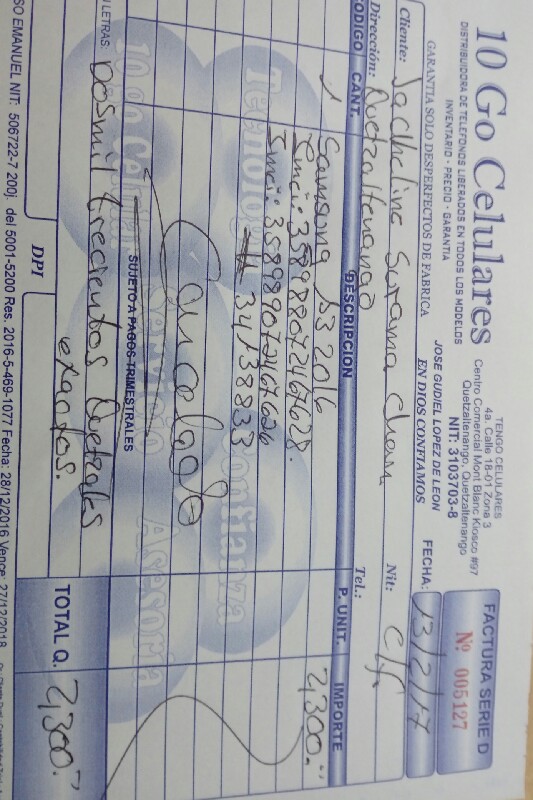 10 Go Celulares
DISTRIBUIDORA DE TELEFONOS LIBERADOS EN TODOS LOS MODELOS
INVENTARIO - PRECIO - GARANTIA
GARANTIA SOLO DESPERFECTOS DE FABRICA
TENGO CELULARES
4a. Calle 18-01 Zona 3
Centro Comercial Mont Blanc Kiosco #97
Quetzaltenango, Quetzaltenango
NIT: 3103703-8
JOSE GUDIEL LOPEZ DE LEON
EN DIOS CONFIAMOS
FACTURA SERIE D
Nº 005127
FECHA: 13/2/17
Cliente: Jackeline Surama Nit: C/F
Dirección: Quetzaltenango Tel.:
CODIGO CANT. DESCRIPCION P. UNIT. IMPORTE
1 Samsung J3 2016 2,300.
Cancelado
SUJETO A PAGOS TRIMESTRALES
LETRAS: Dosmil trecientos Quetzales
exactos.
TOTAL Q. 2,300.
DPI
SO EMANUEL NIT: 506722-7 200j. del 5001-5200 Res. 2016-5-469-1077 Fecha: 28/12/2016 Vence: 27/12/2018